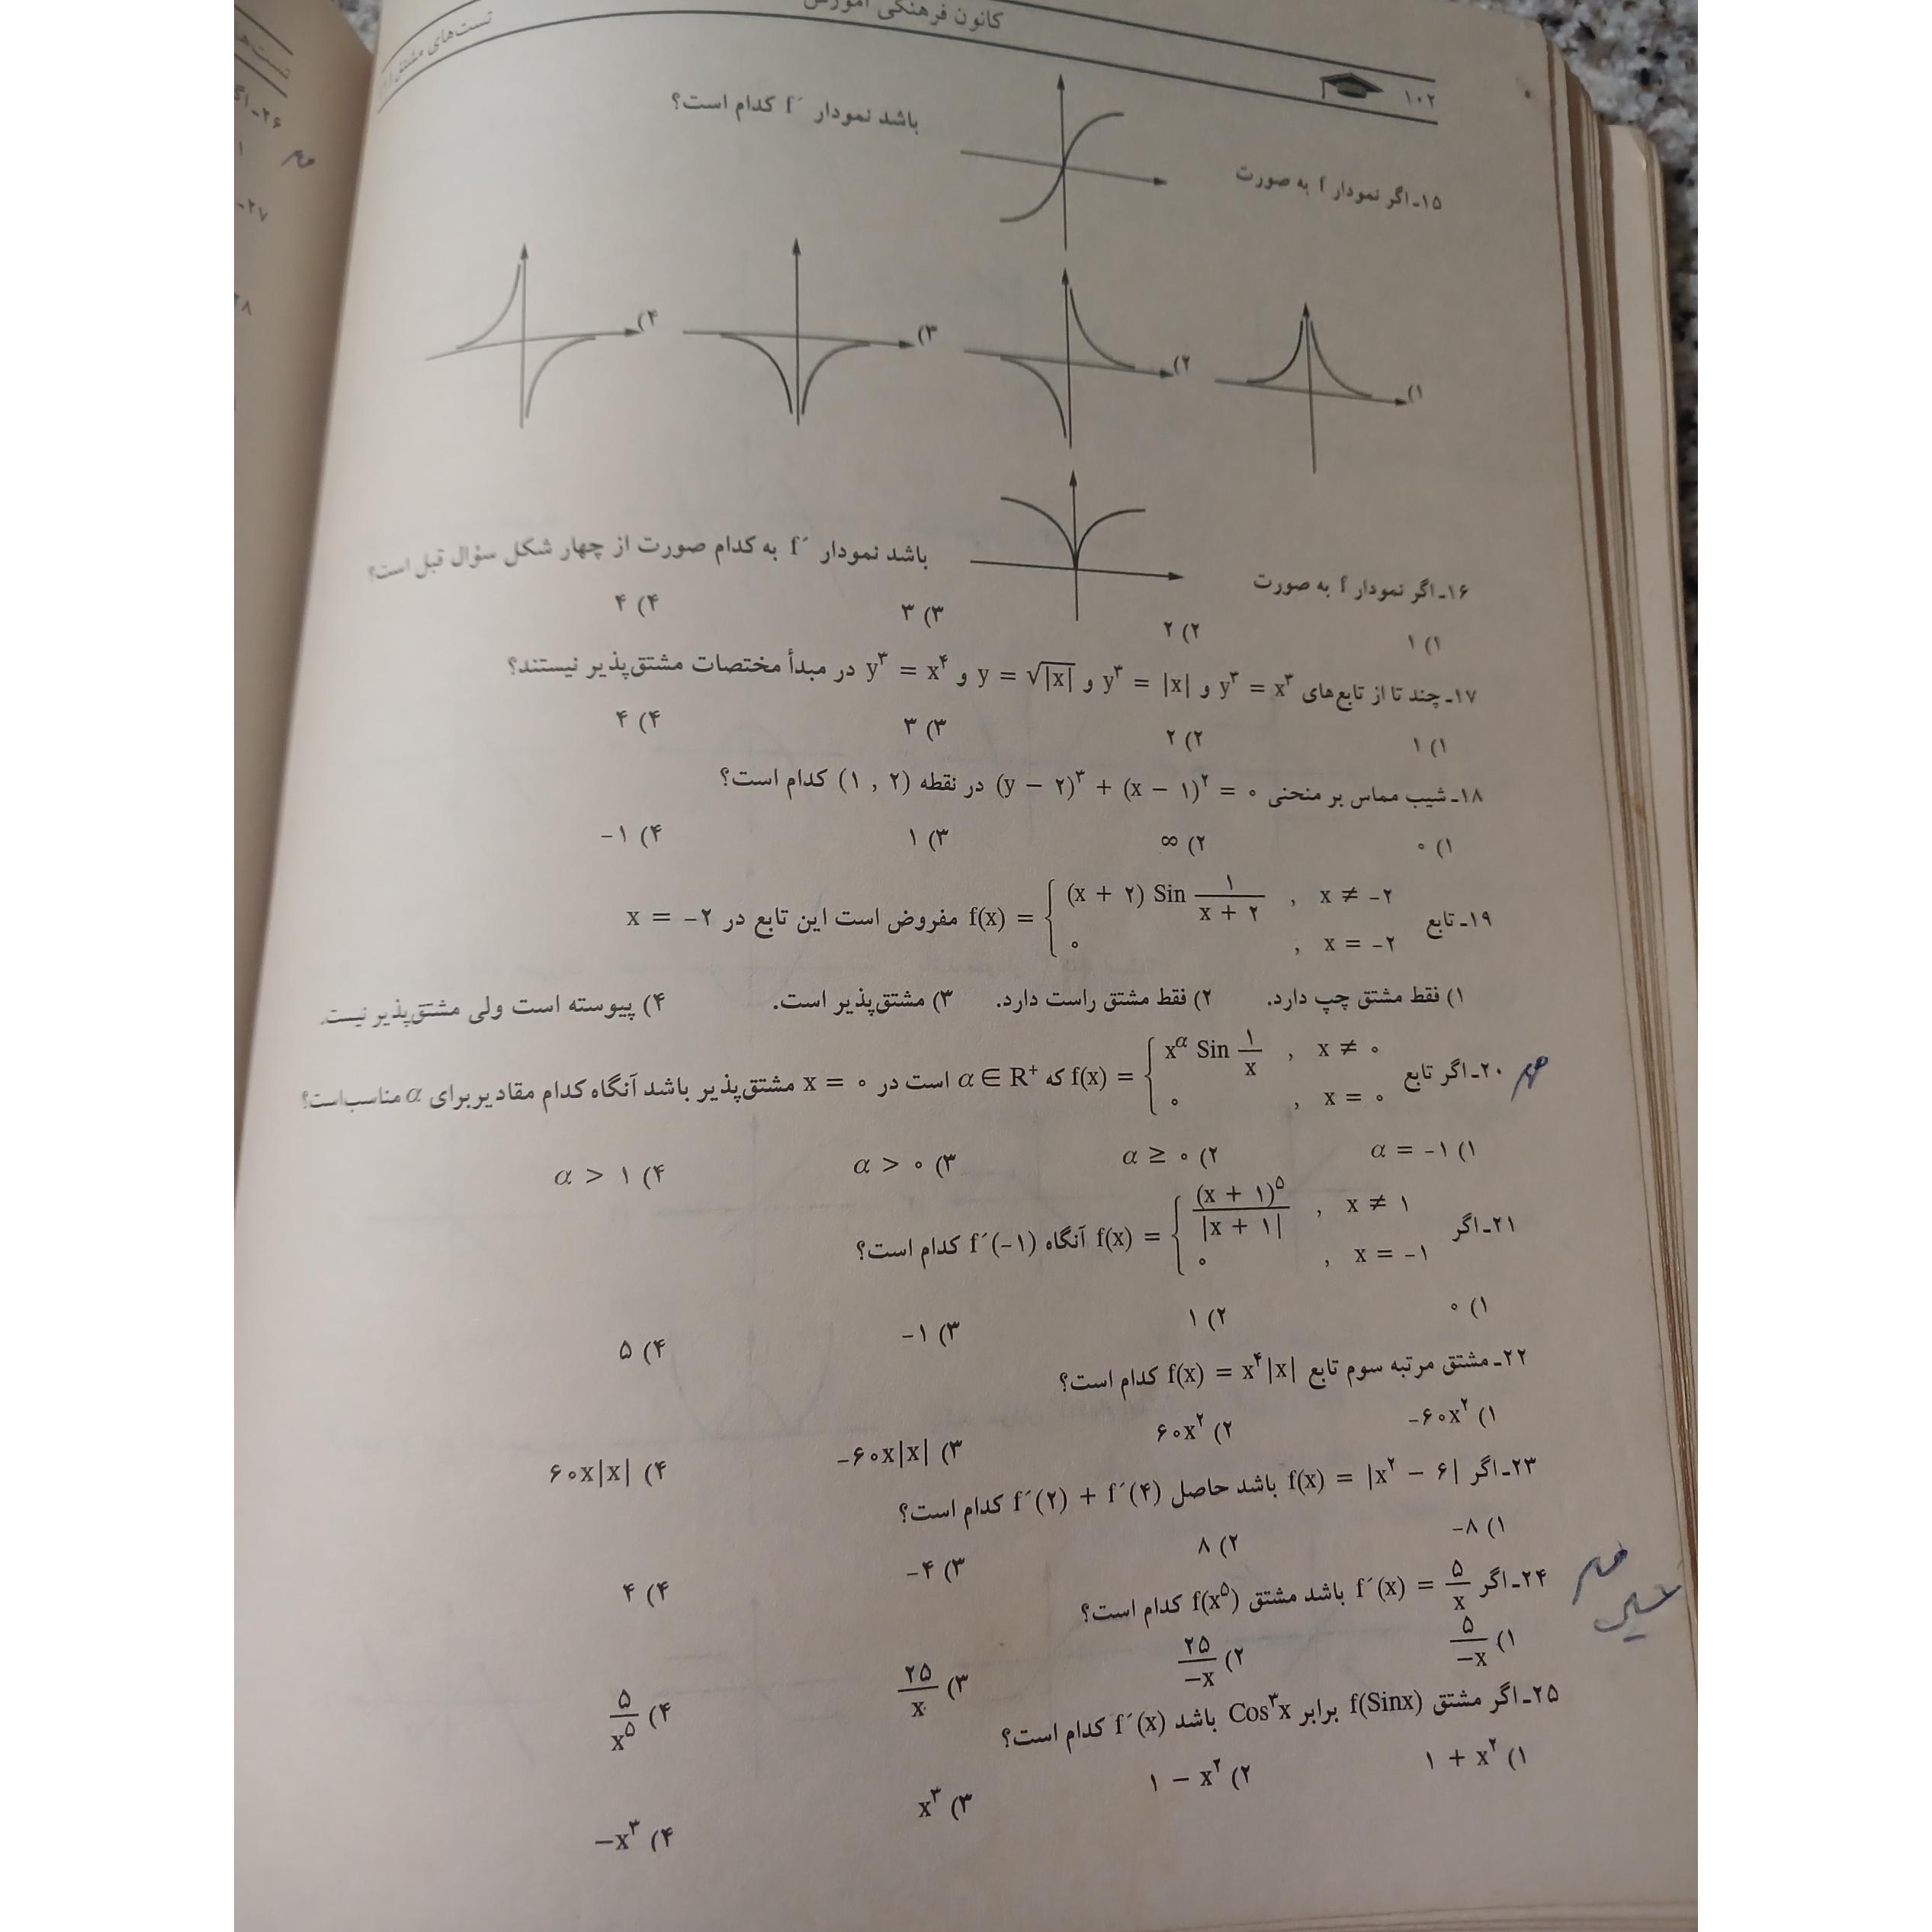 کانون فرهنگی آموزش
تست‌های مشتق
۱۰۲
۱۵ـ اگر نمودار f به صورت باشد نمودار f´ کدام است؟
۱) ۲) ۳) ۴)
۱۶ـ اگر نمودار f به صورت باشد نمودار f´ به کدام صورت از چهار شکل سؤال قبل است؟
۱) ۱ ۲) ۲ ۳) ۳ ۴) ۴
۱۷ـ چند تا از تابع‌های y³ = x³ و y³ = |x| و y = √|x| و y³ = x⁴ در مبدأ مختصات مشتق‌پذیر نیستند؟
۱) ۱ ۲) ۲ ۳) ۳ ۴) ۴
۱۸ـ شیب مماس بر منحنی (y − ۲)³ + (x − ۱)² = ۰ در نقطه (۱ , ۲) کدام است؟
۱) ۰ ۲) ∞ ۳) ۱ ۴) −۱
۱۹ـ تابع f(x) = { (x + ۲) Sin ۱/(x + ۲) , x ≠ −۲
۰ , x = −۲ مفروض است این تابع در x = −۲
۱) فقط مشتق چپ دارد. ۲) فقط مشتق راست دارد. ۳) مشتق‌پذیر است. ۴) پیوسته است ولی مشتق‌پذیر نیست.
۲۰ـ اگر تابع f(x) = { x^α Sin ۱/x , x ≠ ۰
۰ , x = ۰ که α ∈ R⁺ است در x = ۰ مشتق‌پذیر باشد آنگاه کدام مقادیر برای α مناسب است؟
۱) α = −۱ ۲) α ≥ ۰ ۳) α > ۰ ۴) α > ۱
۲۱ـ اگر f(x) = { (x + ۱)⁵/|x + ۱| , x ≠ ۱
۰ , x = −۱ آنگاه f´(−۱) کدام است؟
۱) ۰ ۲) ۱ ۳) −۱ ۴) ۵
۲۲ـ مشتق مرتبه سوم تابع f(x) = x⁴|x| کدام است؟
۱) −۶۰x² ۲) ۶۰x² ۳) −۶۰x|x| ۴) ۶۰x|x|
۲۳ـ اگر f(x) = |x² − ۶| باشد حاصل f´(۲) + f´(۴) کدام است؟
۱) −۸ ۲) ۸ ۳) −۴ ۴) ۴
۲۴ـ اگر f´(x) = ۵/x باشد مشتق f(x⁵) کدام است؟
۱) ۵/−x ۲) ۲۵/−x ۳) ۲۵/x ۴) ۵/x⁵
۲۵ـ اگر مشتق f(Sinx) برابر Cos³x باشد f´(x) کدام است؟
۱) ۱ + x² ۲) ۱ − x² ۳) x³ ۴) −x³
مهم
ـ۲۶ اگر
ـ۲۷